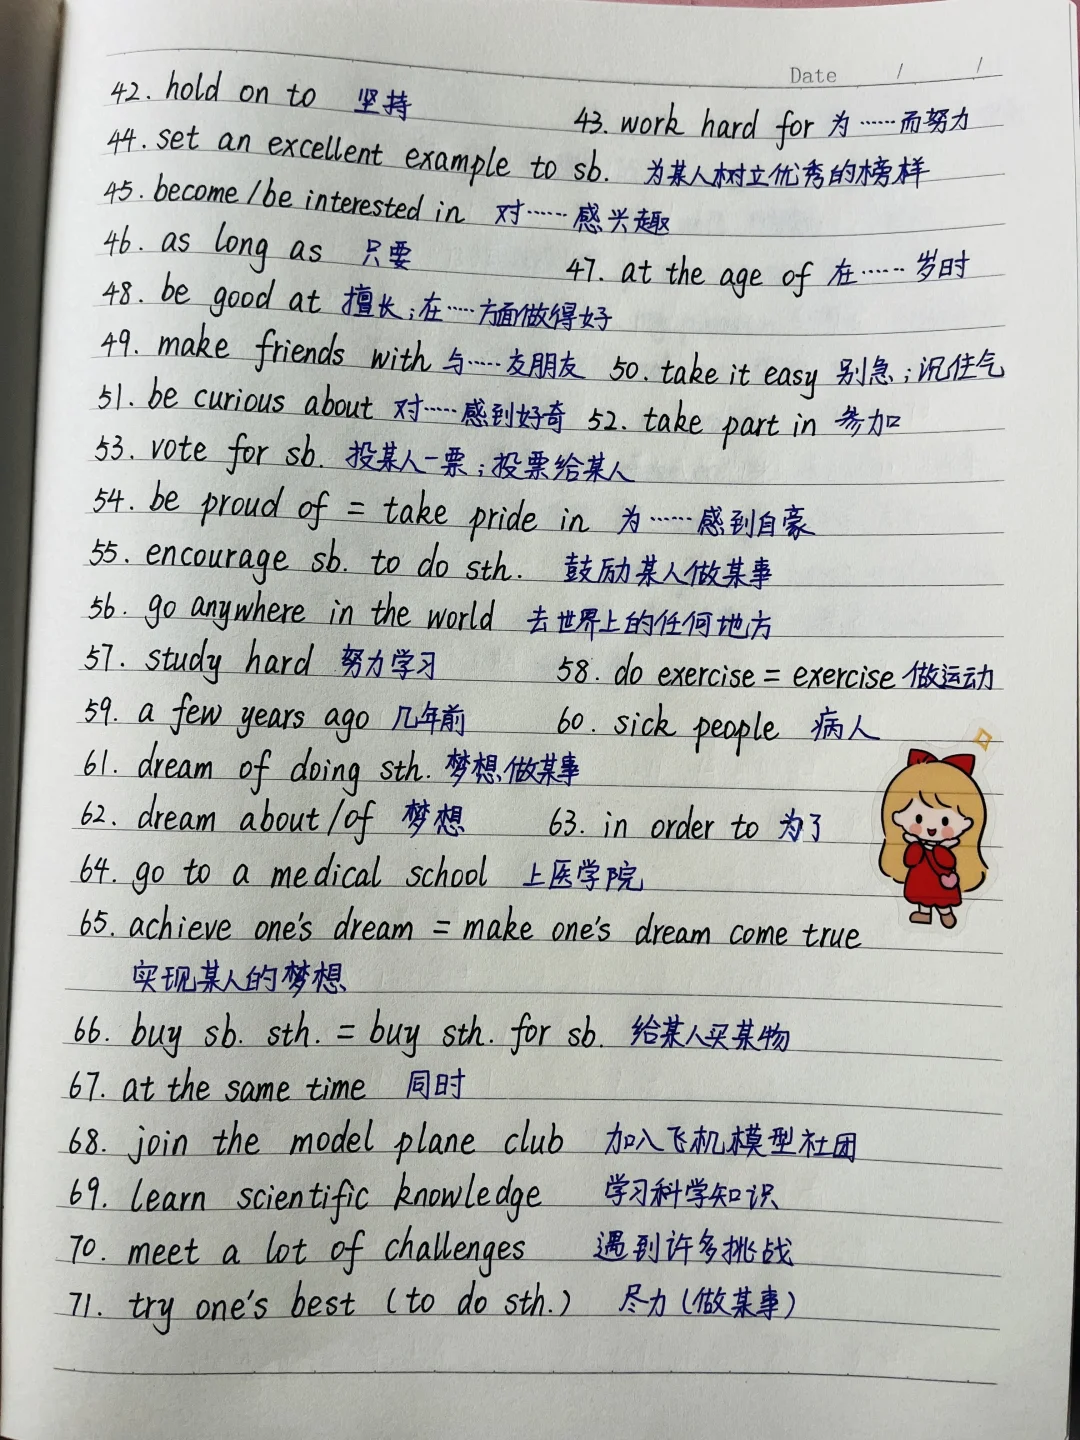 Date / /
42. hold on to 坚持 43. work hard for 为……而努力
44. set an excellent example to sb. 为某人树立优秀的榜样
45. become/be interested in 对……感兴趣
46. as long as 只要 47. at the age of 在……岁时
48. be good at 擅长;在……方面做得好
49. make friends with 与……友朋友 50. take it easy 别急;沉住气
51. be curious about 对……感到好奇 52. take part in 参加
53. vote for sb. 投某人一票;投票给某人
54. be proud of = take pride in 为……感到自豪
55. encourage sb. to do sth. 鼓励某人做某事
56. go anywhere in the world 去世界上的任何地方
57. study hard 努力学习 58. do exercise = exercise 做运动
59. a few years ago 几年前 60. sick people 病人
61. dream of doing sth. 梦想做某事
62. dream about/of 梦想 63. in order to 为了
64. go to a medical school 上医学院
65. achieve one's dream = make one's dream come true
实现某人的梦想
66. buy sb. sth. = buy sth. for sb. 给某人买某物
67. at the same time 同时
68. join the model plane club 加入飞机模型社团
69. learn scientific knowledge 学习科学知识
70. meet a lot of challenges 遇到许多挑战
71. try one's best (to do sth.) 尽力(做某事)